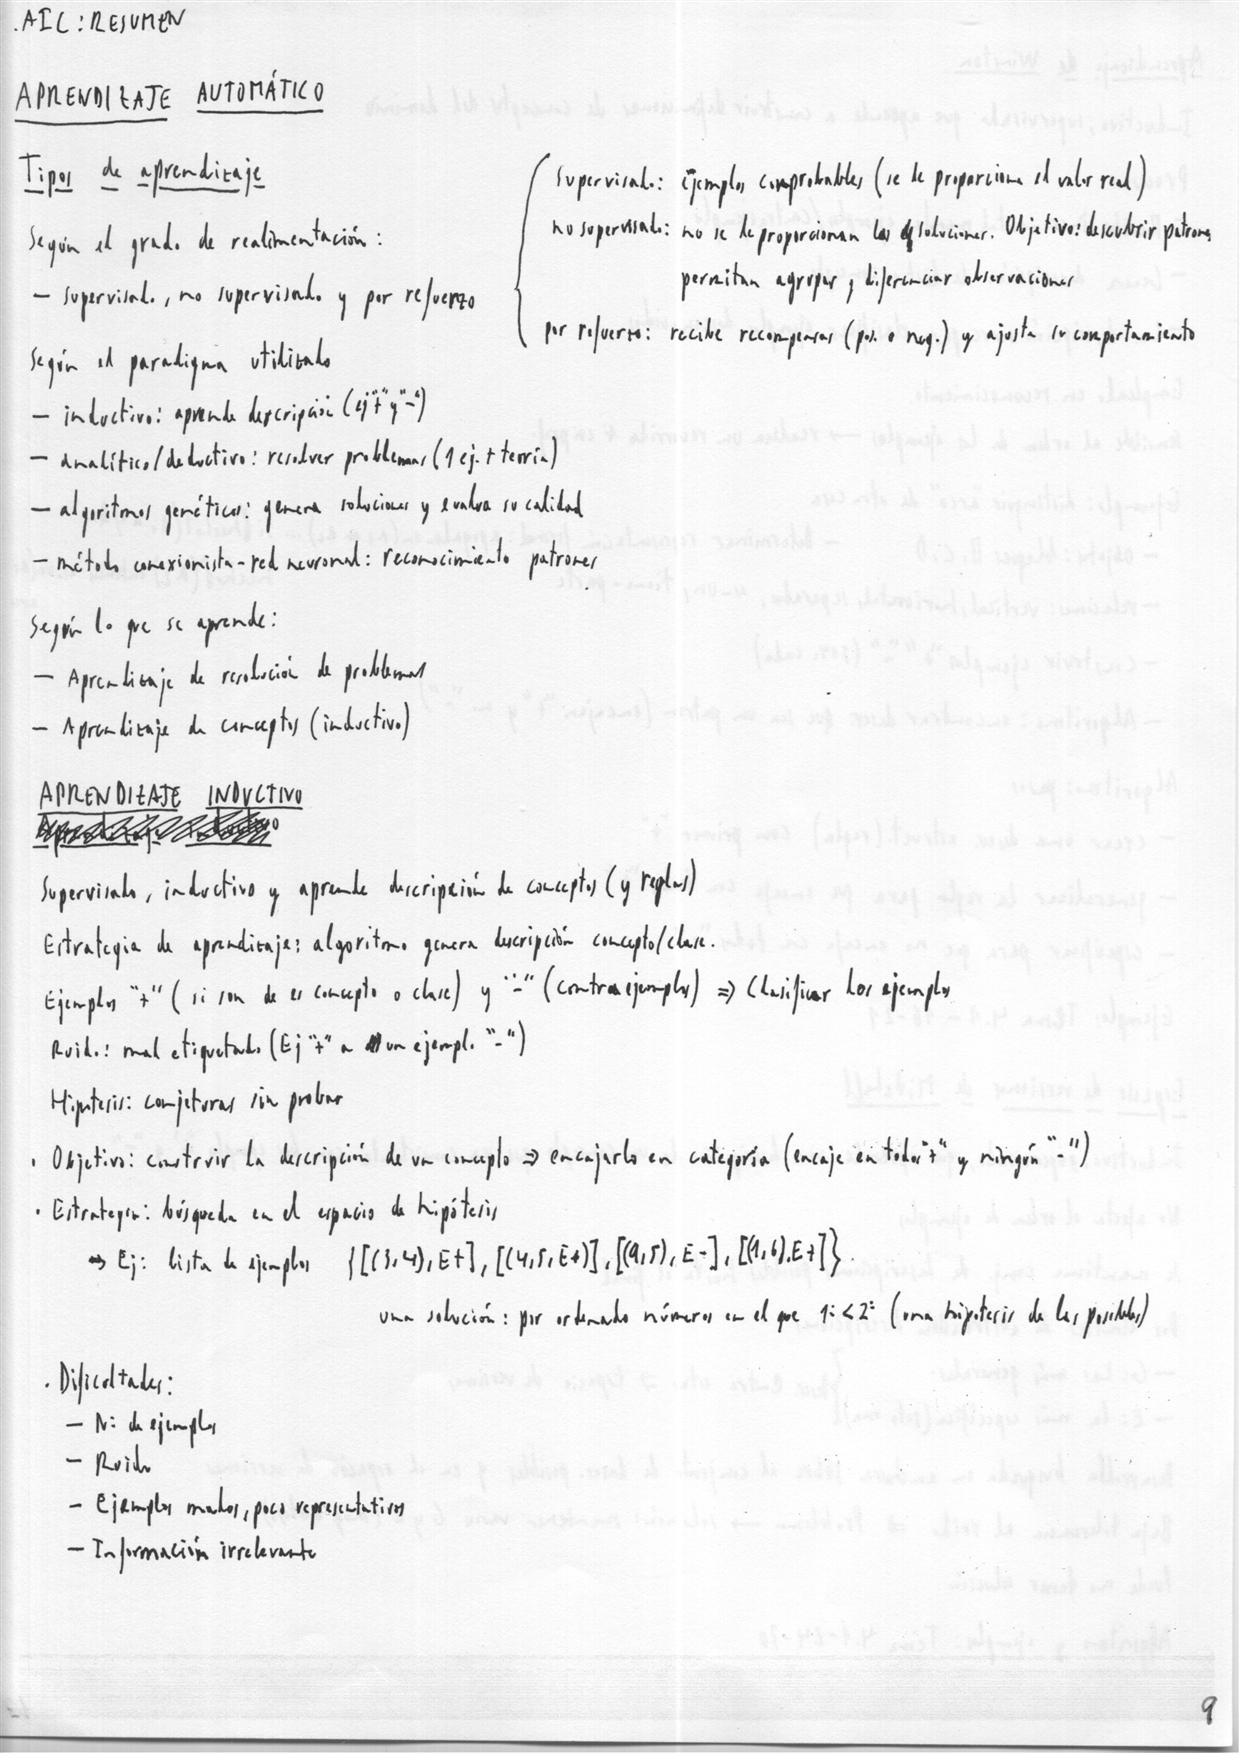 .AIC: RESUMEN
APRENDIZAJE AUTOMÁTICO
Tipos de aprendizaje
Según el grado de realimentación:
- supervisado, no supervisado y por refuerzo
supervisado: ejemplos comprobables (se le proporciona el valor real)
no supervisado: no se le proporcionan las soluciones. Objetivo: descubrir patrones
permitan agrupar y diferenciar observaciones
por refuerzo: recibe recompensas (pos. o neg.) y ajusta su comportamiento
Según el paradigma utilizado
- inductivo: aprende descripción (ej "+" y "-")
- analítico/deductivo: resolver problemas (1 ej. + teoría)
- algoritmos genéticos: genera soluciones y evalua su calidad
- método conexionista-red neuronal: reconocimiento patrones
Según lo que se aprende:
- Aprendizaje de resolución de problemas
- Aprendizaje de conceptos (inductivo)
APRENDIZAJE INDUCTIVO
Supervisado, inductivo y aprende descripción de conceptos (y reglas)
Estrategia de aprendizaje: algoritmo genera descripción concepto/clase.
Ejemplos "+" (si son de es concepto o clase) y "-" (contraejemplos) => Clasificar los ejemplos
Ruido: mal etiquetado (Ej "+" a un ejemplo "-")
Hipotesis: conjeturas sin probar
. Objetivo: construir la descripción de un concepto => encajarlo en categoría (encaje en todos "+" y ningún "-")
. Estrategia: búsqueda en el espacio de hipótesis
=> Ej: lista de ejemplos {[(3,4), E+], [(4,5, E+)], [(9,5), E-], [(1,6), E+]}
una solución: par ordenado números en el que 1º < 2º (una hipotesis de las posibles)
. Dificultades:
- Nº de ejemplos
- Ruido
- Ejemplos malos, poco representativos
- Información irrelevante
9